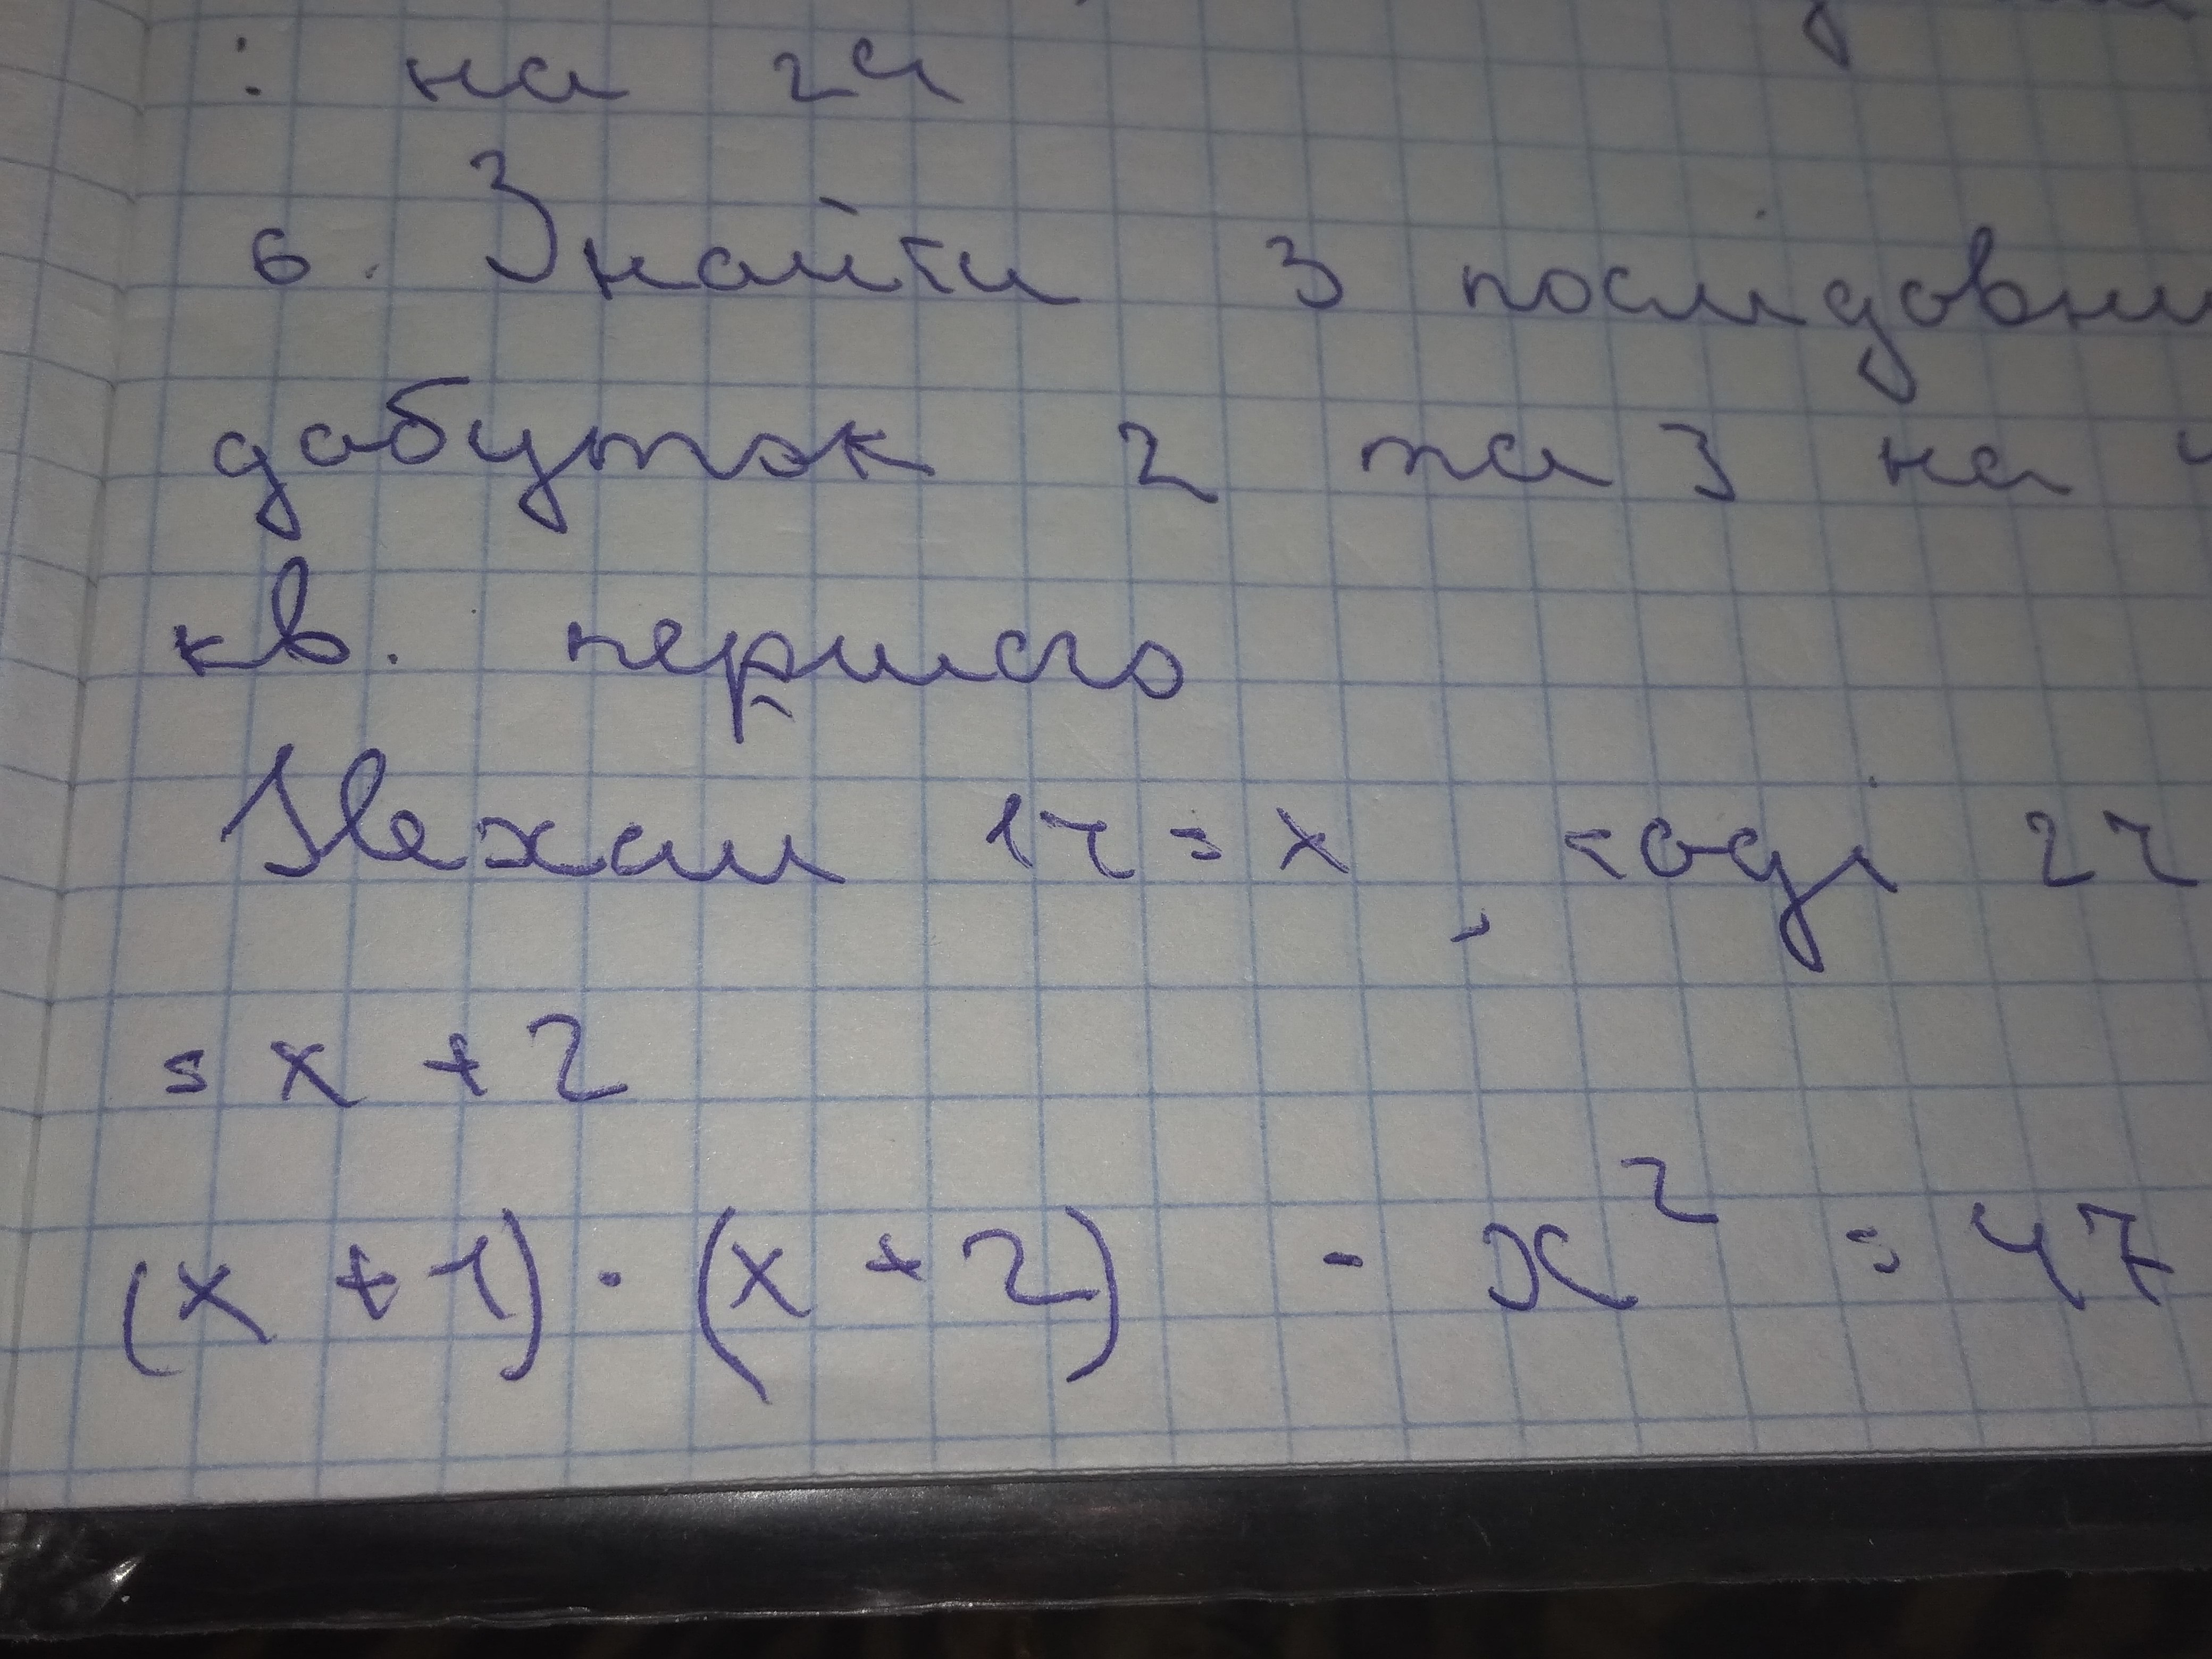 : на 24
6. Знайти 3 послідовни
добуток 2 та 3 на
кв. першого
Нехай 1ч = x, тоді 2ч
= x + 2
(x + 1) · (x + 2) - x² = 47